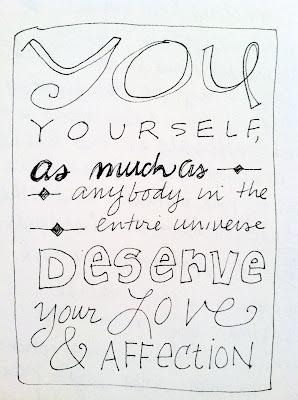 YOU
YOURSELF,
as much as
anybody in the
entire universe
DeseRve
your Love
& AFFecTiON